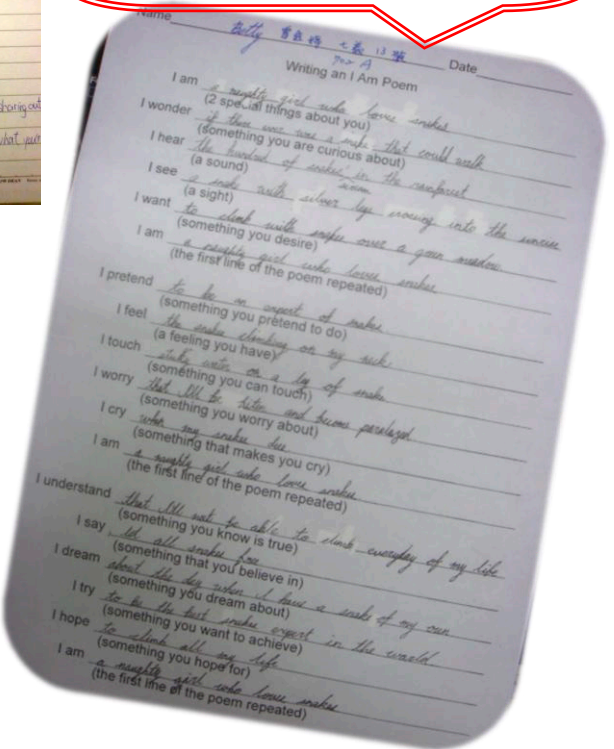 sharing out
what
Name Betty 七義 13號 Date
702 A
Writing an I Am Poem
I am a naughty girl who loves snakes
(2 special things about you)
I wonder if there ever was a snake that could walk
(something you are curious about)
I hear the hundred of snakes' in the rainforest
(a sound)
I see a snake with silver legs moving into the sunrise
(a sight)
I want to climb with snakes over a green meadow
(something you desire)
I am a naughty girl who loves snakes
(the first line of the poem repeated)
I pretend to be an expert of snakes
(something you pretend to do)
I feel the snakes climbing on my neck
(a feeling you have)
I touch on a leg of snake
(something you can touch)
I worry that I'll be biten and become paralyzed
(something you worry about)
I cry when my snakes die
(something that makes you cry)
I am a naughty girl who loves snakes
(the first line of the poem repeated)
I understand that I'll not be able to climb everyday of my life
(something you know is true)
I say let all snakes free
(something that you believe in)
I dream about the day when I have a snake of my own
(something you dream about)
I try to be the best snakes expert in the world
(something you want to achieve)
I hope to climb all my life
(something you hope for)
I am a naughty girl who loves snakes
(the first line of the poem repeated)